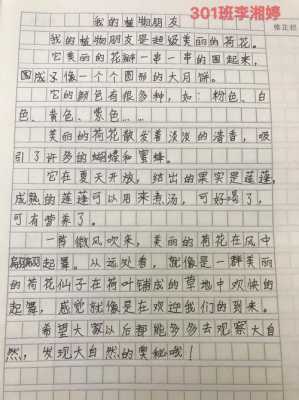 301班李湘婷
修正栏
我的植物朋友
我的植物朋友是超级美丽的荷花。
它美丽的花瓣一串一串的围起来，
围成了像一个个圆形的大月饼。
它的颜色有很多种，如：粉色、白
色、黄色、紫色……
美丽的荷花散发着淡淡的清香，吸
引了许多的蝴蝶和蜜蜂。
它在夏天开放，结出的果实是莲蓬，
成熟的莲蓬可以用来煮汤，可好喝了，
可有营养了。
一阵微风吹来，美丽的荷花在风中
翩翩起舞。从远处看，就像是一群美丽
的荷花仙子在荷叶铺成的草地中欢快的
起舞，感觉就像是在欢迎我们的到来。
希望大家以后都能多多去观察大自
然，发现大自然的奥秘哦！